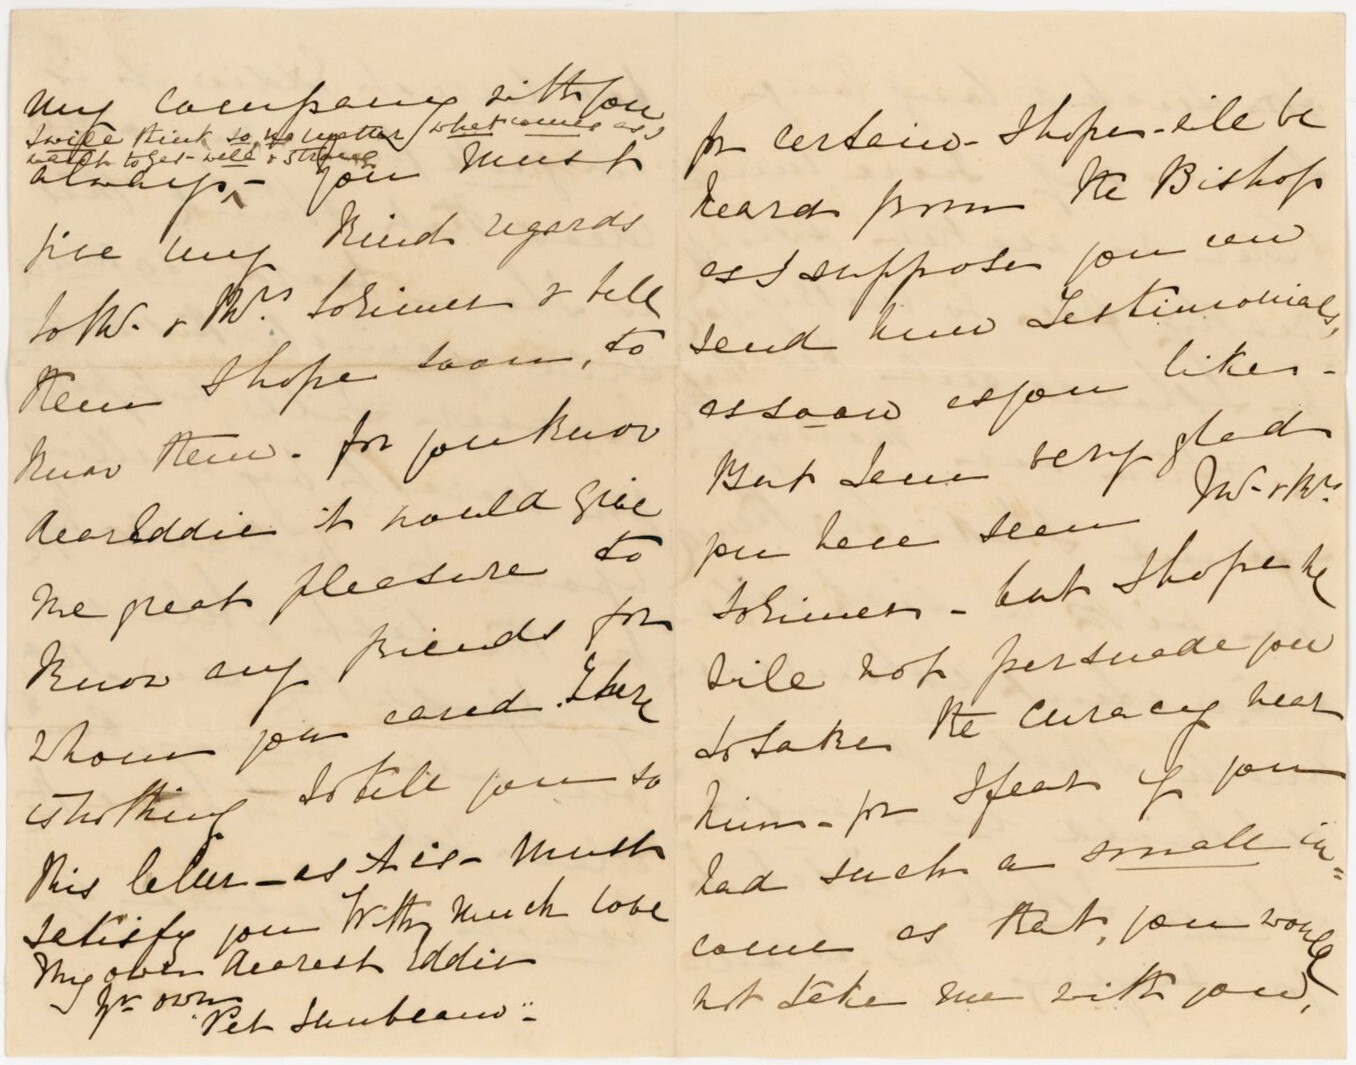 my company with you
I will think so, no matter what comes as I
wish to get well & strong
always, - you must
give my kind regards
to Mr. & Mrs Lorimer & tell
them I hope soon, to
know them. for you know
dear Eddie it would give
me great pleasure to
know any friends for
whom you cared. There
is nothing to tell you so
this letter - as it is - must
satisfy you With much love
My own dearest Eddie
Yr own
"Pet Sunbeam".
for certain - I hope - ile be
heard from the Bishop
as I suppose you can
send him Testimonials,
as soon as you like. -
But I am very glad
you have seen Mr. & Mrs
Lorimer - but I hope he
will not persuade you
to take the Curacy near
him - for I fear if you
had such a small in=
come as that, you would
not take me with you,